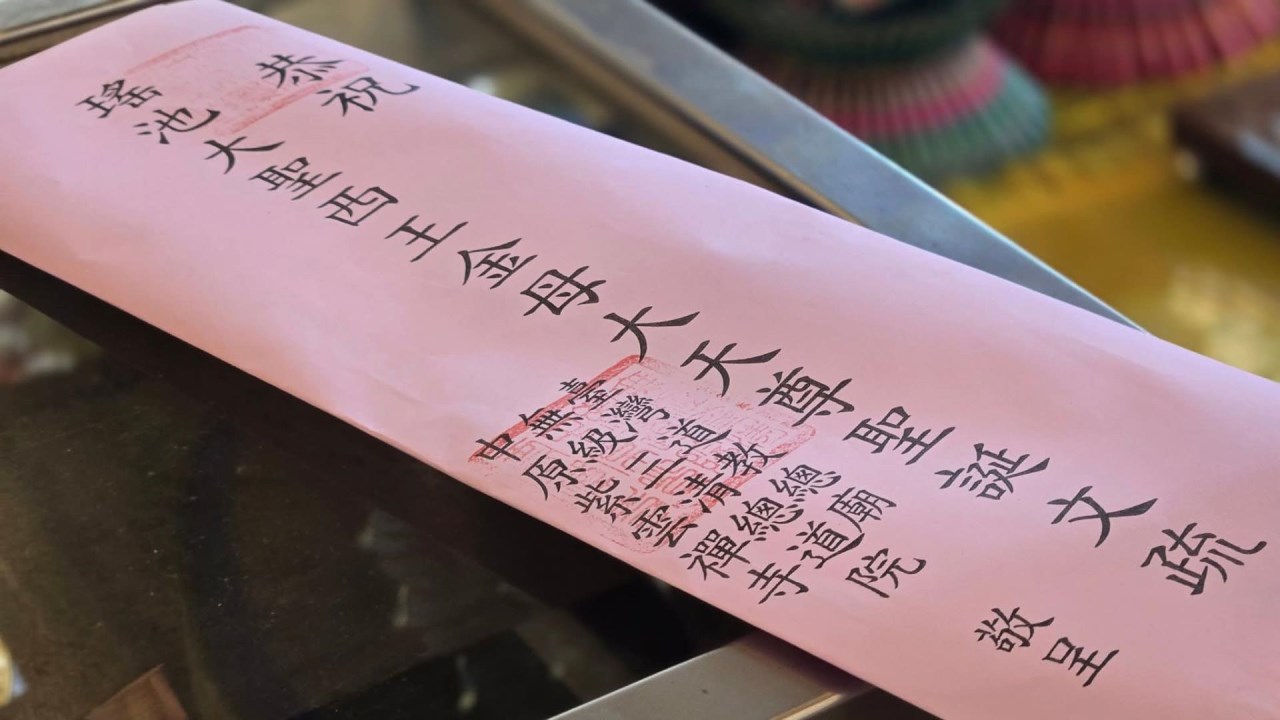 恭祝
瑤池大聖西王金母大天尊聖誕文疏
臺灣道教總廟
無級三清總道院
中原紫雲禪寺
敬呈